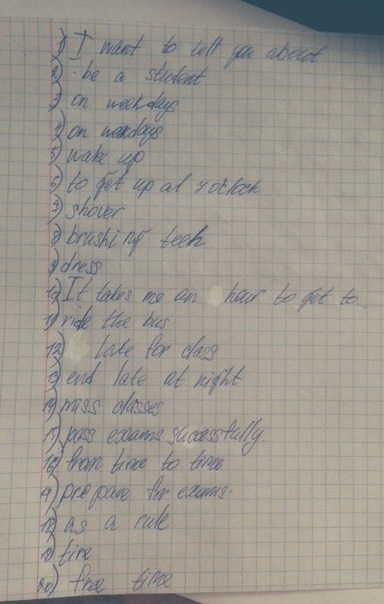 1) I want to tell you about
2) be a student
3) on weekdays
4) on weekdays
5) wake up
6) to get up at 7 o'clock
7) shover
8) brushing teeh
9) dress
10) It takes me an hour to get to...
11) ride the bus
12) late for class
13) end late at night
14) miss classes
15) pass exams successfully.
16) from time to time
17) prepare for exams.
18) as a rule
19) tire
20) free time